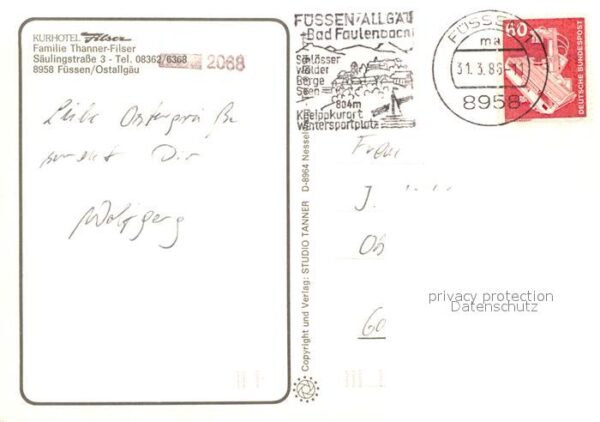 KURHOTEL Filser
Familie Thanner-Filser
Säulingstraße 3 - Tel. 08362/6368
8958 Füssen/Ostallgäu
2068
Liebe Ostergrüße
sendet Dir
Wolfgang
FÜSSEN/ALLGÄU
Bad Faulenbach
Schlösser
Wälder
Berge
Seen
804m
Kneippkurort
Wintersportplatz
FÜSSEN
ma
31.3.86
8958
60
DEUTSCHE BUNDESPOST
Copyright und Verlag: STUDIO TANNER D-8964 Nessel
Frau
J.
privacy protection
Datenschutz